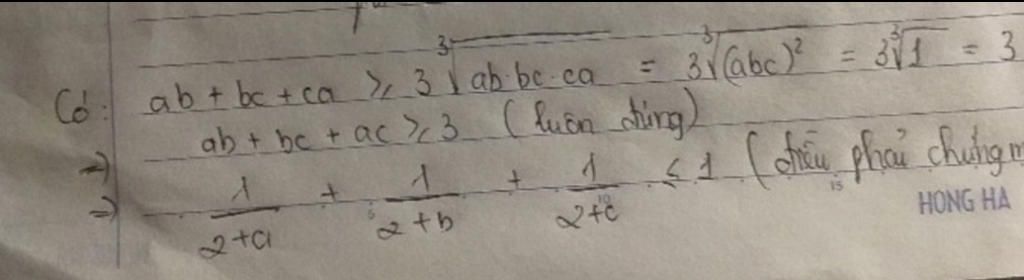 Có: ab + bc + ca ⩾ 3∛(ab.bc.ca) = 3∛(abc)² = 3∛1 = 3
⇒ ab + bc + ac ⩾ 3 (luôn đúng)
⇒ 1/(2+a) + 1/(2+b) + 1/(2+c) ≤ 1 (điều phải chứng m
5 10 15
HONG HA